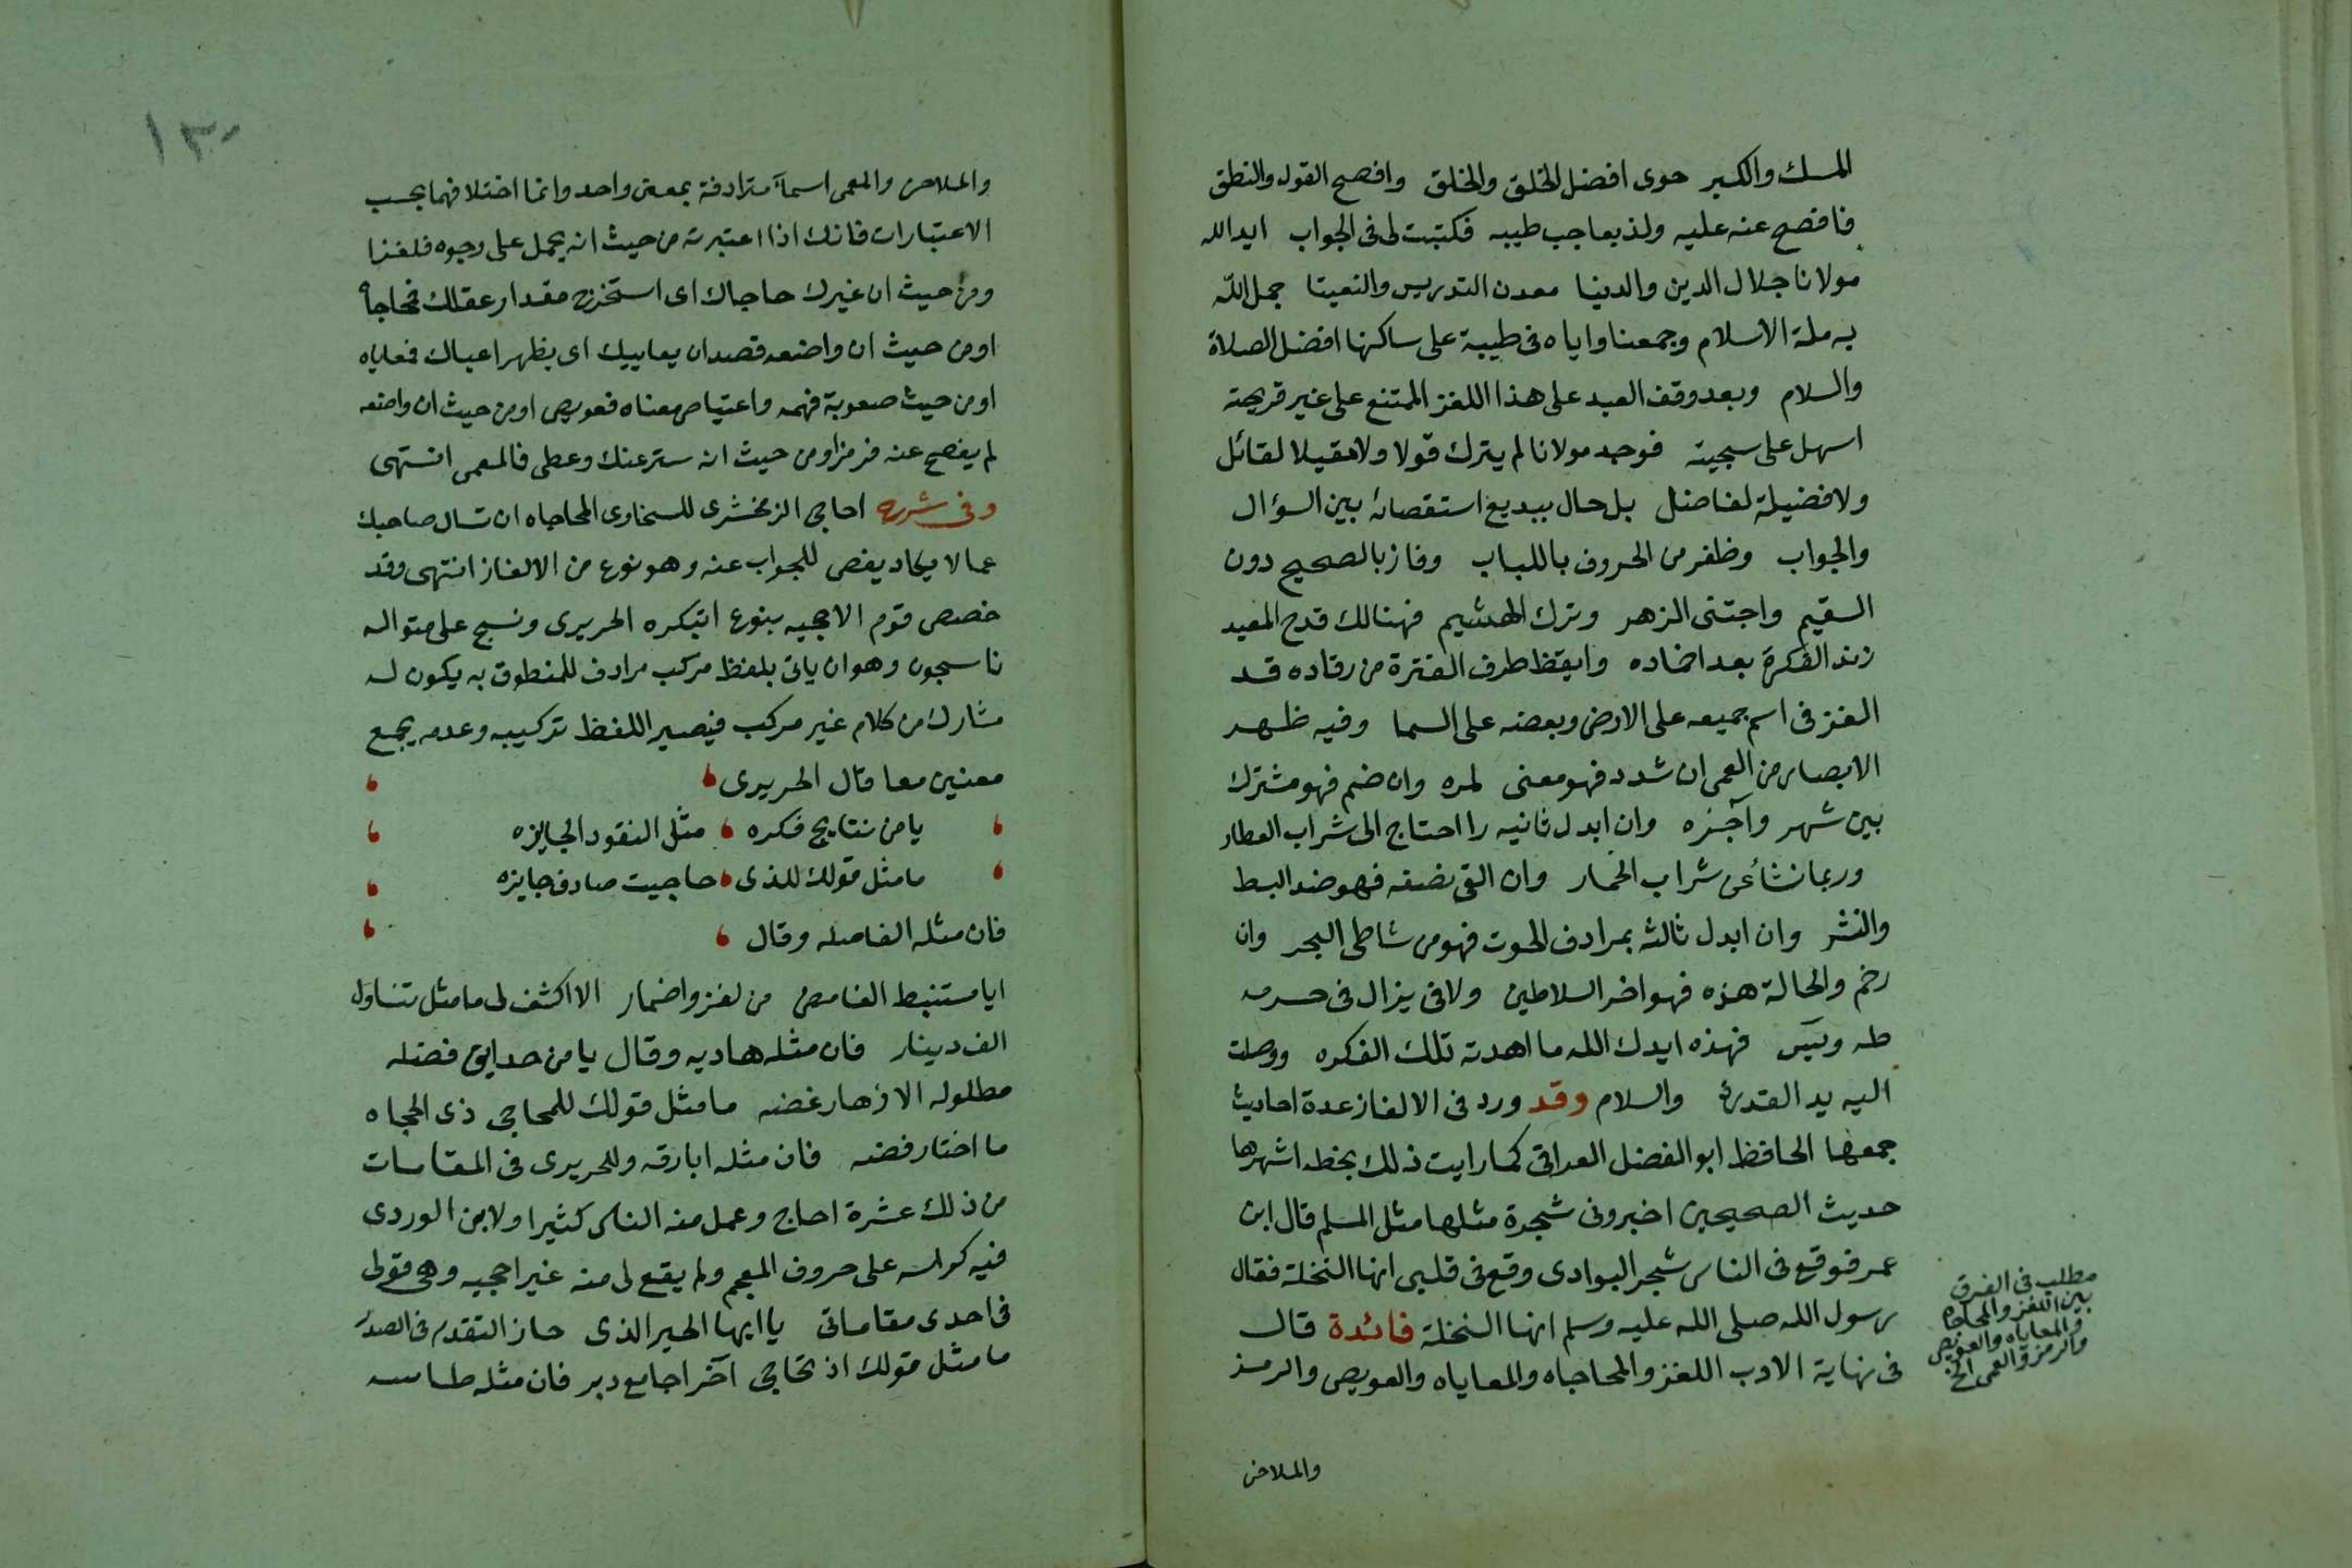 المسك والكبير حوى افضل الخلق والخلق وافصح القول والنطق
فافصح عنه عليه ولذ بعاجب طيبه فكتبت لى فى الجواب ايد الله
مولانا جلال الدين والدنيا معدن التدريس والفتيا جمل الله
به ملة الاسلام وجمعنا واياه فى طيبة على ساكنها افضل الصلاة
والسلام وبعد وقف العبد على هذا اللغز الممتنع على غير قريحته
اسهل على سجيته فوجد مولانا لم يترك قولا ولا مقيلا لقائل
ولا فضيلة لفاضل بل حال ببديع استقصائه بين السؤال
والجواب وظفر من الحروف باللباب وفاز بالصحيح دون
السقيم واجتنى الزهر وترك الهشيم فهنالك قدح المعيد
زند الفكرة بعد اخماده وايقظ طرف الفترة من رقاده قد
الغز فى اسم جميعه على الارض وبعضه على السما وفيه ظهر
الابصار من العمى ان شدد فهو معنى لمره وان ضم فهو مشترك
بين شهر وآخره وان ابدل ثانيه را احتاج الى شراب العطار
وربما نشأ عن شراب الخمار وان القى نصفه فهو ضد البسط
والنشر وان ابدل ثالثه بمرادف الحوت فهو من شاطى البحر وان
رخم والحالة هذه فهو اخر السلاطين ولاقى يزال فى حرمه
طه ويس فهذه ايدك الله ما اهدته تلك الفكره ووصلت
اليه يد القدرة والسلام وقد ورد فى الالغاز عدة احاديث
جمعها الحافظ ابو الفضل العراقى كما رايت ذلك بخطه اشهرها
حديث الصحيحين اخبرونى شجرة مثلها مثل المسلم قال ابن
عمر فوقع فى الناس شجر البوادى وقع فى قلبى انها النخلة فقال
رسول الله صلى الله عليه وسلم انها النخلة فائدة قال
فى نهاية الادب اللغز والمحاجاه والمعاياه والعويص والرمز
مطلب فى الفرق
بين اللغز والمحاجاه
والمعاياه والعويص
والرمز والعمى الخ
والملاحن
١٣٠
والملاحن والمعمى اسمآ مترادفة بمعنى واحد وانما اختلافهما بحسب
الاعتبارات فانك اذا اعتبرته من حيث انه يحمل على وجوه فلغزا
ومن حيث ان غيرك حاجاك اى استخرج مقدار عقلك فمحاجاه
اومن حيث ان واضعه قصد ان يعاييك اى يظهر اعياك فمعاياه
اومن حيث صعوبة فهمه واعتياص معناه فعويص اومن حيث ان واضعه
لم يفصح عنه فرمز اومن حيث انه ستر عنك وغطى فالمعمى انتهى
وفى شرح احاجى الزمخشرى للسخاوى المحاجاه ان تسال صاحبك
عما لا يكاد يفص للجواب عنه وهو نوع من الالغاز انتهى وقد
خصص قوم الاحجيه بنوع ابتكره الحريرى ونسج على منواله
ناسجون وهو ان ياتى بلفظ مركب مرادف للمنطوق به يكون له
مشارك من كلام غير مركب فيصير اللفظ تركيبه وعدمه يجمع
معنيين معا قال الحريرى
يا من نتايج فكره مثل النقود الجايزه
ما مثل قولك للذى حاجيت صادف جايزه
فان مثله الفاصله وقال
ايا مستنبط الغامض من لغز واضمار الا اكشف لى ما مثل تناول
الف دينار فان مثله هاديه وقال يا من حدايق فضله
مطلوله الازهار غضه ما مثل قولك للمحاجى ذى الحجاه
ما اختار فضه فان مثله ابارقه وللحريرى فى المقامات
من ذلك عشرة احاج وعمل منه الناس كثيرا ولابن الوردى
فيه كراسه على حروف المعجم ولم يقع لى منه غير احجيه وهى قولى
فى احدى مقاماتى يا ايها الحبر الذى حاز التقدم فى الصدر
ما مثل قولك اذ تحاجى آخرا جامع دبر فان مثله طاسه